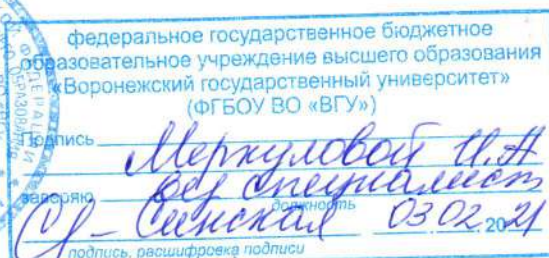 федеральное государственное бюджетное
образовательное учреждение высшего образования
«Воронежский государственный университет»
(ФГБОУ ВО «ВГУ»)
Подпись Меркуловой И.А
заверяю вед специалист
должность
Сенская 03 02.2021
подпись, расшифровка подписи